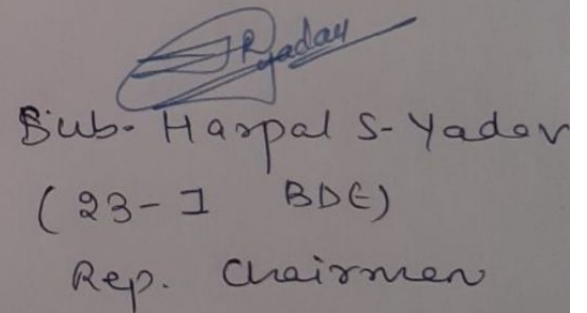 Yadav
Sub- Harpal S- Yadav
(23- I BDE)
Rep. Chairman